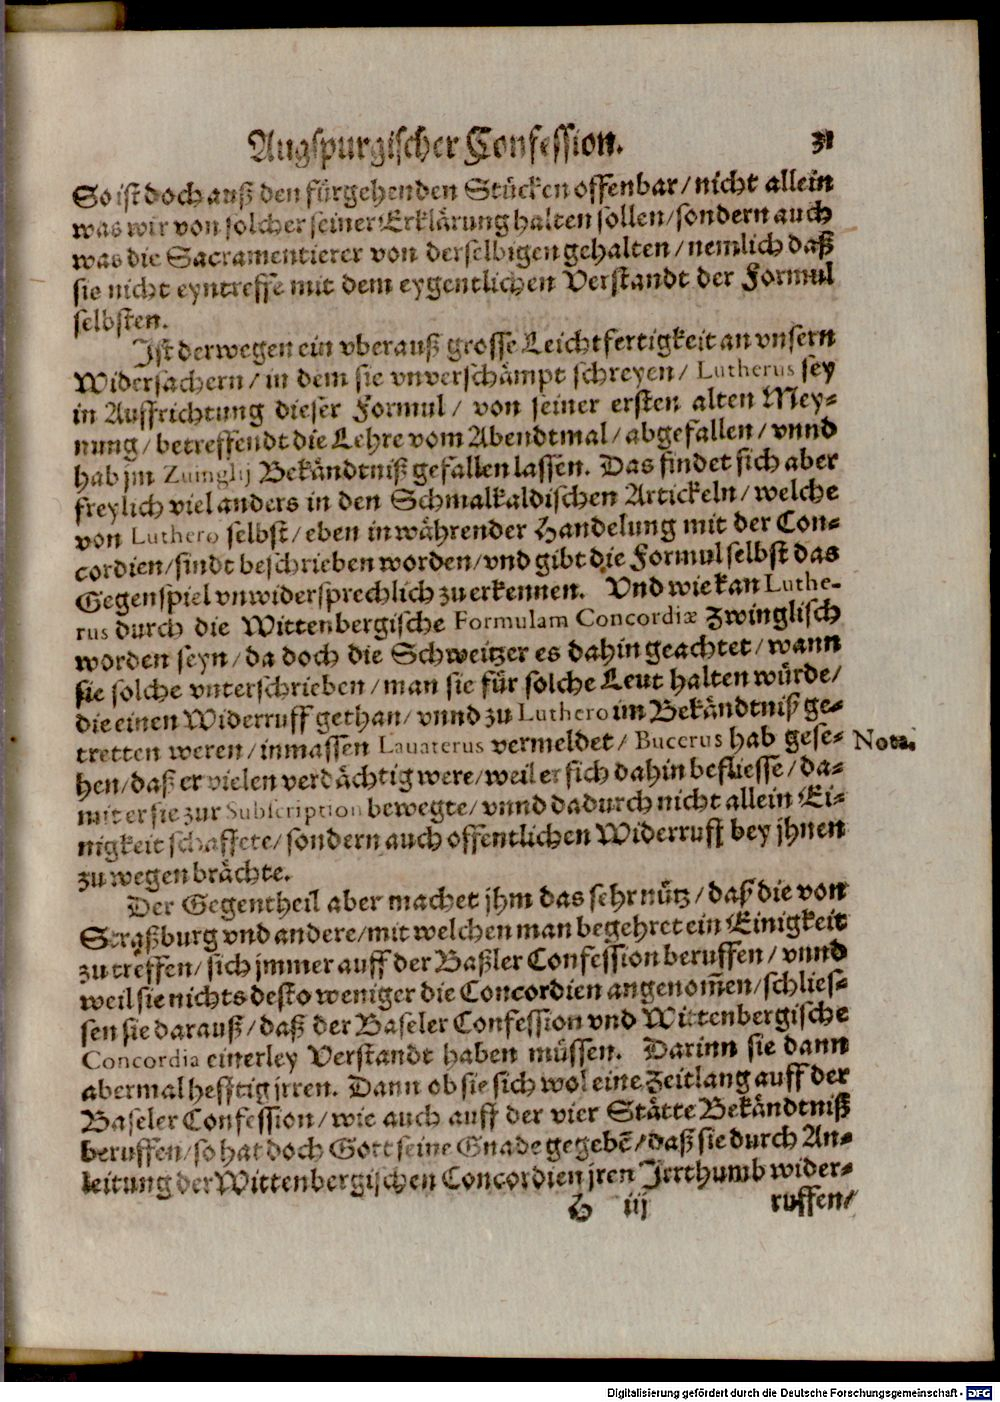 Augspurgischer Confession. 31
So ist doch auß den fürgehenden Stücken offenbar/nicht allein
was wir von solcher seiner Erklärung halten sollen/sondern auch
was die Sacramentierer von derselbigen gehalten/nemlich daß
sie nicht eyntreffe mit dem eygentlichen Verstandt der Formul
selbsten.
Ist derwegen ein vberauß grosse Leichtfertigkeit an vnsern
Widersachern/in dem sie vnverschämpt schreyen/Lutherus sey
in Auffrichtung dieser Formul/von seiner ersten alten Mey-
nung/betreffendt die Lehre vom Abendtmal/abgefallen/vnnd
hab jm Zuinglij Bekändtniß gefallen lassen. Das findet sich aber
freylich viel anders in den Schmalkaldischen Artickeln/welche
von Luthero selbst/eben in währender Handelung mit der Con-
cordien/sindt beschrieben worden/vnd gibt die Formul selbst das
Gegenspiel vnwidersprechlich zu erkennen. Vnd wie kan Luthe-
rus durch die Wittenbergische Formulam Concordiæ Zwinglisch
worden seyn/da doch die Schweitzer es dahin geachtet/wann
sie solche vnterschrieben/man sie für solche Leut halten würde/
die einen Widerruff gethan/vnnd zu Luthero im Bekändtniß ge-
tretten weren/inmassen Lauaterus vermeldet/Bucerus hab gese- Nota.
hen/daß er vielen verdächtig were/weil er sich dahin befliesse/da-
mit er sie zur Subscription bewegte/vnnd dadurch nicht allein Ei-
nigkeit schaffete/sondern auch offentlichen Widerruff bey jhnen
zu wegen brächte.
Der Gegentheil aber machet jhm das sehr nütz/daß die von
Straßburg vnd andere/mit welchen man begehret ein Einigkeit
zu treffen/sich jmmer auff der Baßler Confession beruffen/vnnd
weil sie nichts desto weniger die Concordien angenom̃en/schlies-
sen sie darauß/daß der Baseler Confession vnd Wittenbergische
Concordia einerley Verstandt haben müssen. Darinn sie dann
abermal hefftig jrren. Dann ob sie sich wol eine Zeitlang auff der
Baseler Confession/wie auch auff der vier Stätte Bekändtniß
beruffen/so hat doch Gott seine Gnade gegebẽ/daß sie durch An-
leitung der Wittenbergischen Concordien jren Jrrthumb wider-
H iij ruffen/
Digitalisierung gefördert durch die Deutsche Forschungsgemeinschaft - DFG